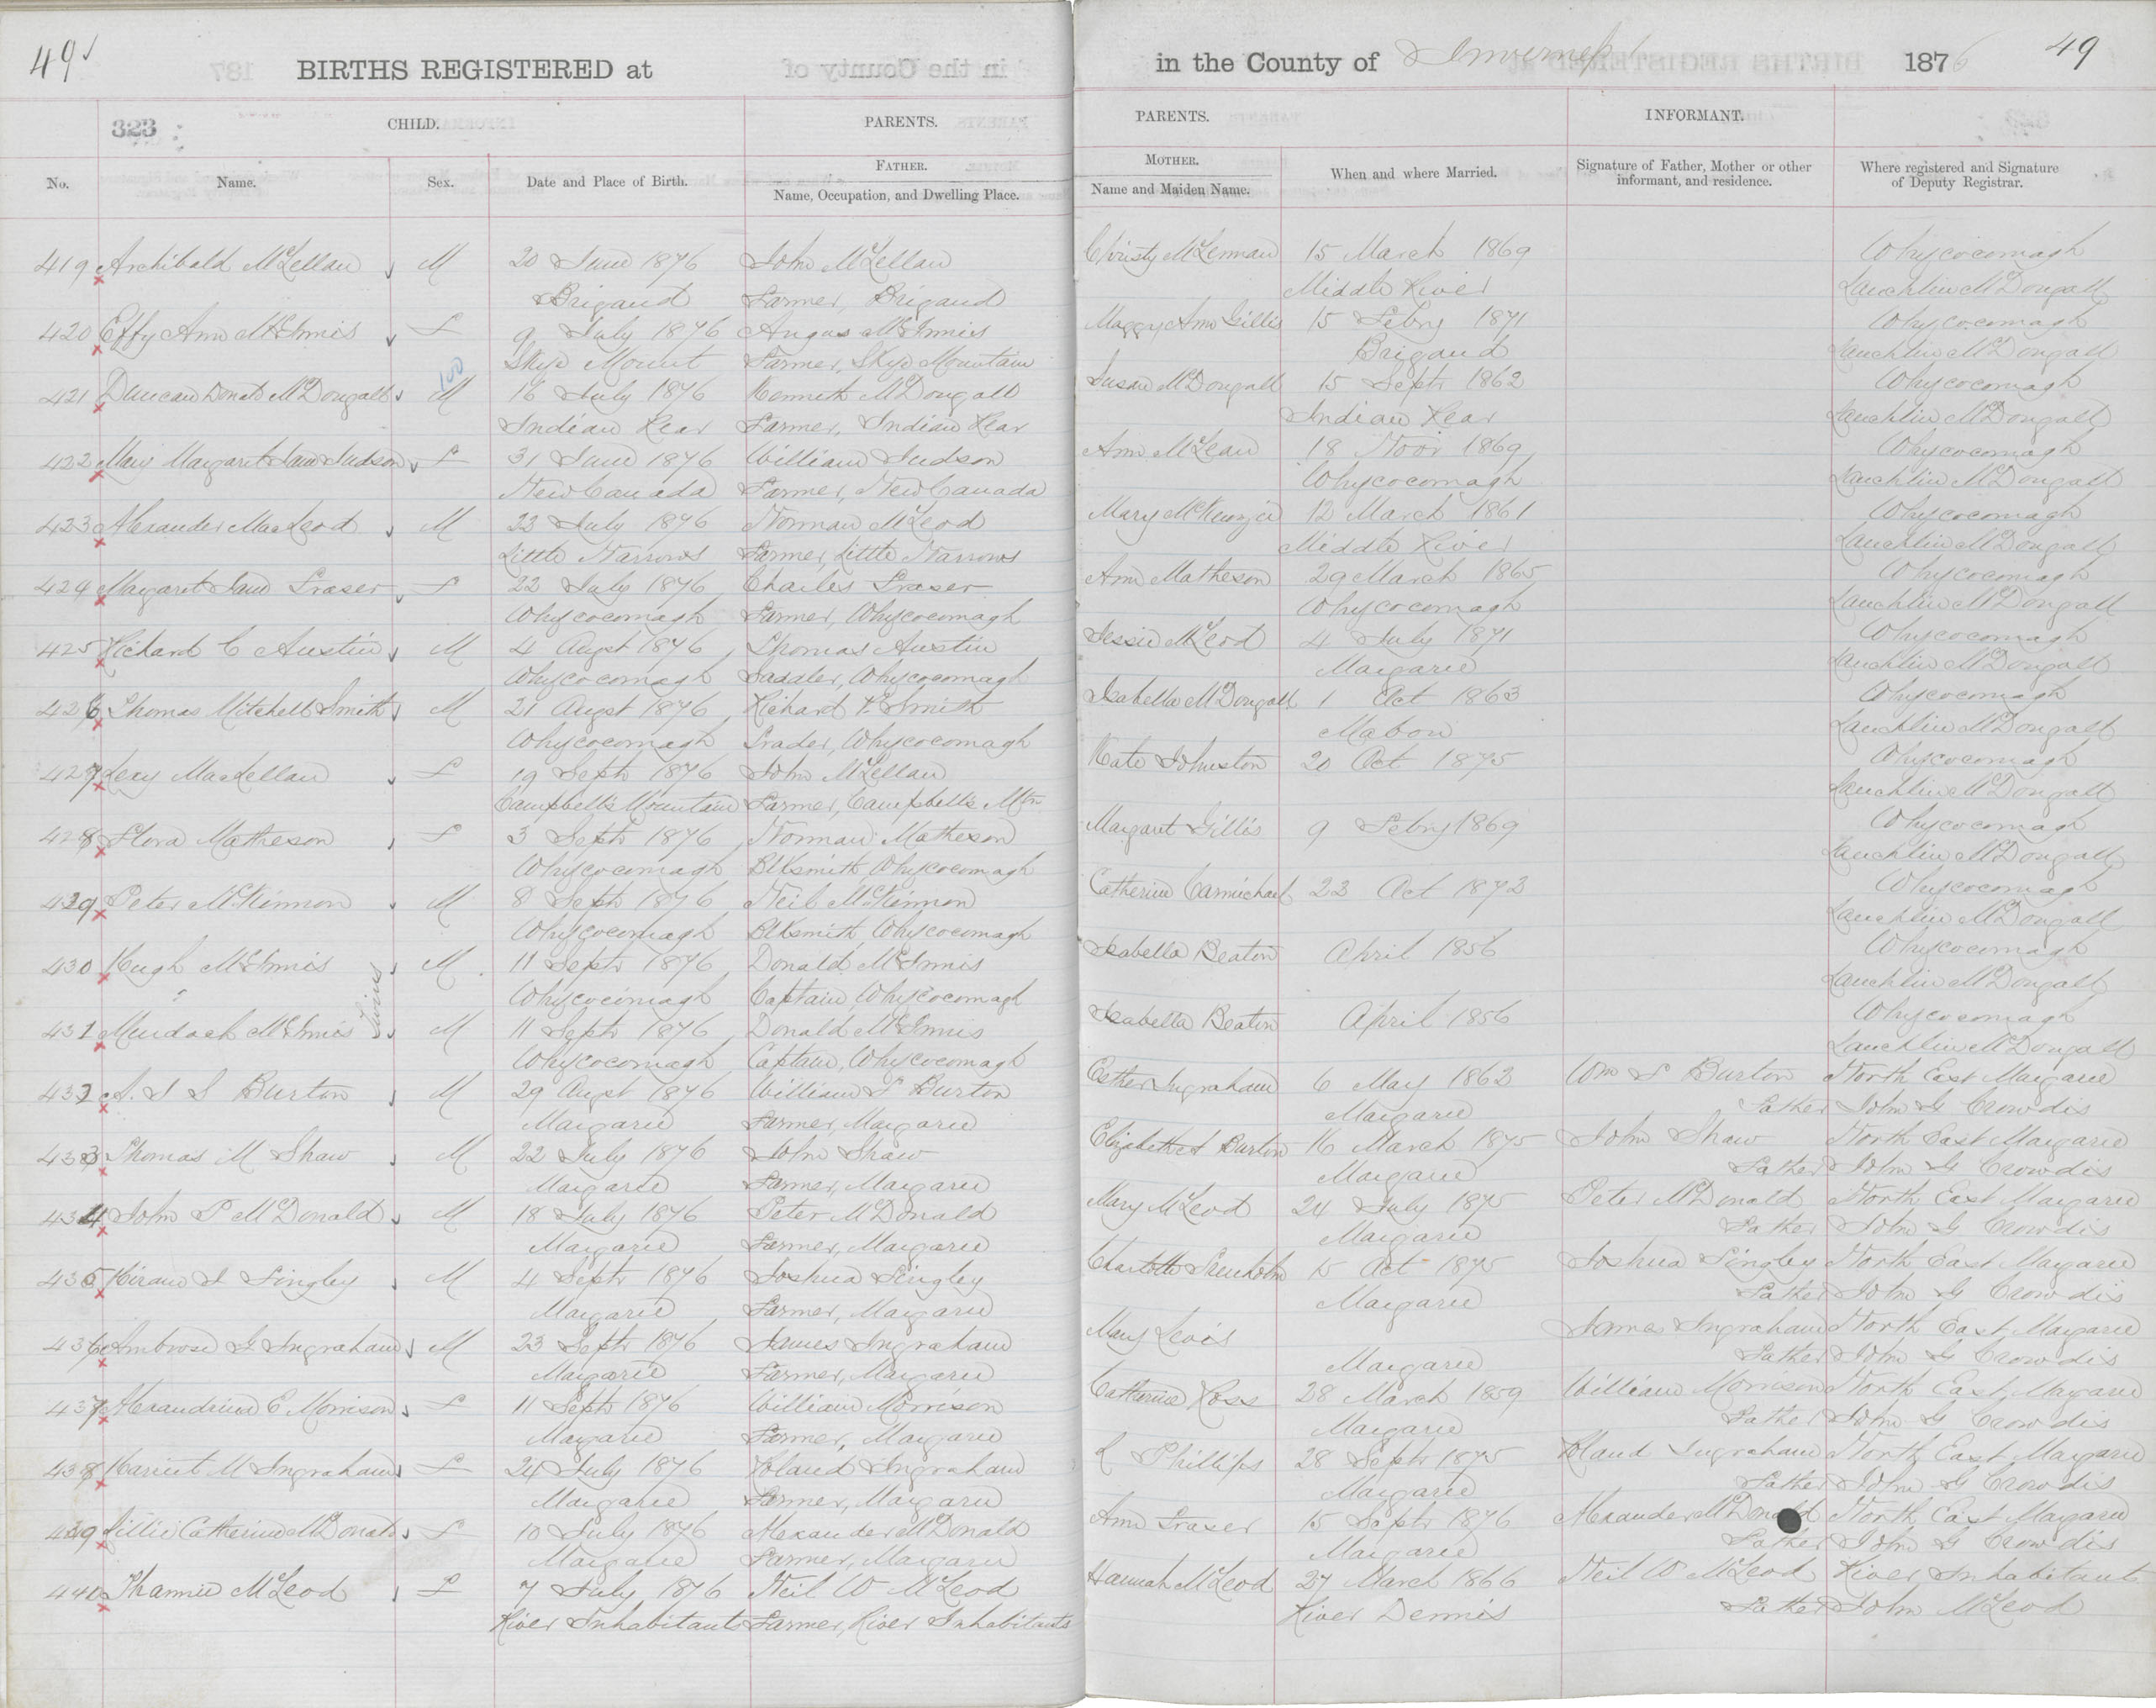 49
BIRTHS REGISTERED at
in the County of Inverness 1876 49
323
CHILD. PARENTS. PARENTS. INFORMANT.
FATHER. MOTHER.
No. Name. Sex. Date and Place of Birth. Name, Occupation, and Dwelling Place. Name and Maiden Name. When and where Married. Signature of Father, Mother or other informant, and residence. Where registered and Signature of Deputy Registrar.
419 Archibald McLellan M 20 June 1876 John McLellan Christy McLennan 15 March 1869 Whycocomagh
Brigand Farmer, Brigand Middle River Lauchlin McDougall
420 Effy Ann McInnis F 9 July 1876 Angus McInnis Maggy Ann Gillis 15 Febry 1871 Whycocomagh
Skye Mount Farmer, Skye Mountain Brigand Lauchlin McDougall
100
421 Duncan Donald McDougall M 16 July 1876 Kenneth McDougall Susan McDougall 15 Septr 1862 Whycocomagh
Indian Rear Farmer, Indian Rear Indian Rear Lauchlin McDougall
422 Mary Margaret Jane Judson F 31 June 1876 William Judson Ann McLean 18 Novr 1869 Whycocomagh
New Canada Farmer, New Canada Whycocomagh Lauchlin McDougall
423 Alexander MacLeod M 22 July 1876 Norman McLeod Mary McKenzie 12 March 1861 Whycocomagh
Little Narrows Farmer, Little Narrows Middle River Lauchlin McDougall
424 Margaret Jane Fraser F 22 July 1876 Charles Fraser Ann Matheson 29 March 1865 Whycocomagh
Whycocomagh Farmer, Whycocomagh Whycocomagh Lauchlin McDougall
425 Richard C Austin M 4 Augst 1876 Thomas Austin Jessie McLeod 4 July 1871 Whycocomagh
Whycocomagh Saddler, Whycocomagh Margarie Lauchlin McDougall
426 Thomas Mitchell Smith M 21 Augst 1876 Richard Smith Isabella McDougall 1 Oct 1863 Whycocomagh
Whycocomagh Trader, Whycocomagh Mabou Lauchlin McDougall
427 Lexy MacLellan F 19 Septr 1876 John McLellan Kate Johnston 20 Oct 1875 Whycocomagh
Campbell's Mountain Farmer, Campbell's Mtn Lauchlin McDougall
428 Flora Matheson F 3 Septr 1876 Norman Matheson Margaret Gillis 9 Febry 1869 Whycocomagh
Whycocomagh Blksmith Whycocomagh Lauchlin McDougall
429 Peter McKinnon M 8 Septr 1876 Neil McKinnon Catherine Carmichael 23 Oct 1872 Whycocomagh
Whycocomagh Blksmith Whycocomagh Lauchlin McDougall
430 Hugh McInnis M 11 Septr 1876 Donald McInnis Isabella Beaton April 1856 Whycocomagh
Twins
Whycocomagh Captain, Whycocomagh Lauchlin McDougall
431 Murdoch McInnis M 11 Septr 1876 Donald McInnis Isabella Beaton April 1856 Whycocomagh
Whycocomagh Captain, Whycocomagh Lauchlin McDougall
432 A. J S Burton M 29 Augst 1876 William S Burton Esther Ingraham 6 May 1862 Wm S Burton North East Margarie
Margarie Farmer, Margarie Margarie Father John G Crowdis
433 Thomas M Shaw M 22 July 1876 John Shaw Elizabeth A Burton 16 March 1875 John Shaw North East Margarie
Margarie Farmer, Margarie Margarie Father John G Crowdis
434 John P McDonald M 18 July 1876 Peter McDonald Mary McLeod 24 July 1875 Peter McDonald North East Margarie
Margarie Farmer, Margarie Margarie Father John G Crowdis
435 Hiram I Tingley M 4 Septr 1876 Joshua Tingley Charlotte Trenholm 15 Oct 1875 Joshua Tingley North East Margarie
Margarie Farmer, Margarie Margarie Father John G Crowdis
436 Ambrose G Ingraham M 23 Septr 1876 James Ingraham Mary Levis James Ingraham North East Margarie
Margarie Farmer, Margarie Margarie Father John G Crowdis
437 Alexandrina E Morrison F 11 Septr 1876 William Morrison Catherine Ross 28 March 1859 William Morrison North East Margarie
Margarie Farmer, Margarie Margarie Father John G Crowdis
438 Harriet M Ingraham F 24 July 1876 Roland Ingraham R Phillips 28 Septr 1875 Roland Ingraham North East Margarie
Margarie Farmer, Margarie Margarie Father John G Crowdis
439 Lillie Catherine McDonald F 10 July 1876 Alexander McDonald Ann Fraser 15 Septr 1876 Alexander McDonald North East Margarie
Margarie Farmer, Margarie Margarie Father John G Crowdis
440 McLeod F 7 July 1876 Neil W McLeod Hannah McLeod 27 March 1866 Neil W McLeod River Inhabitants
River Inhabitants Farmer, River Inhabitants River Dennis Father John McLeod